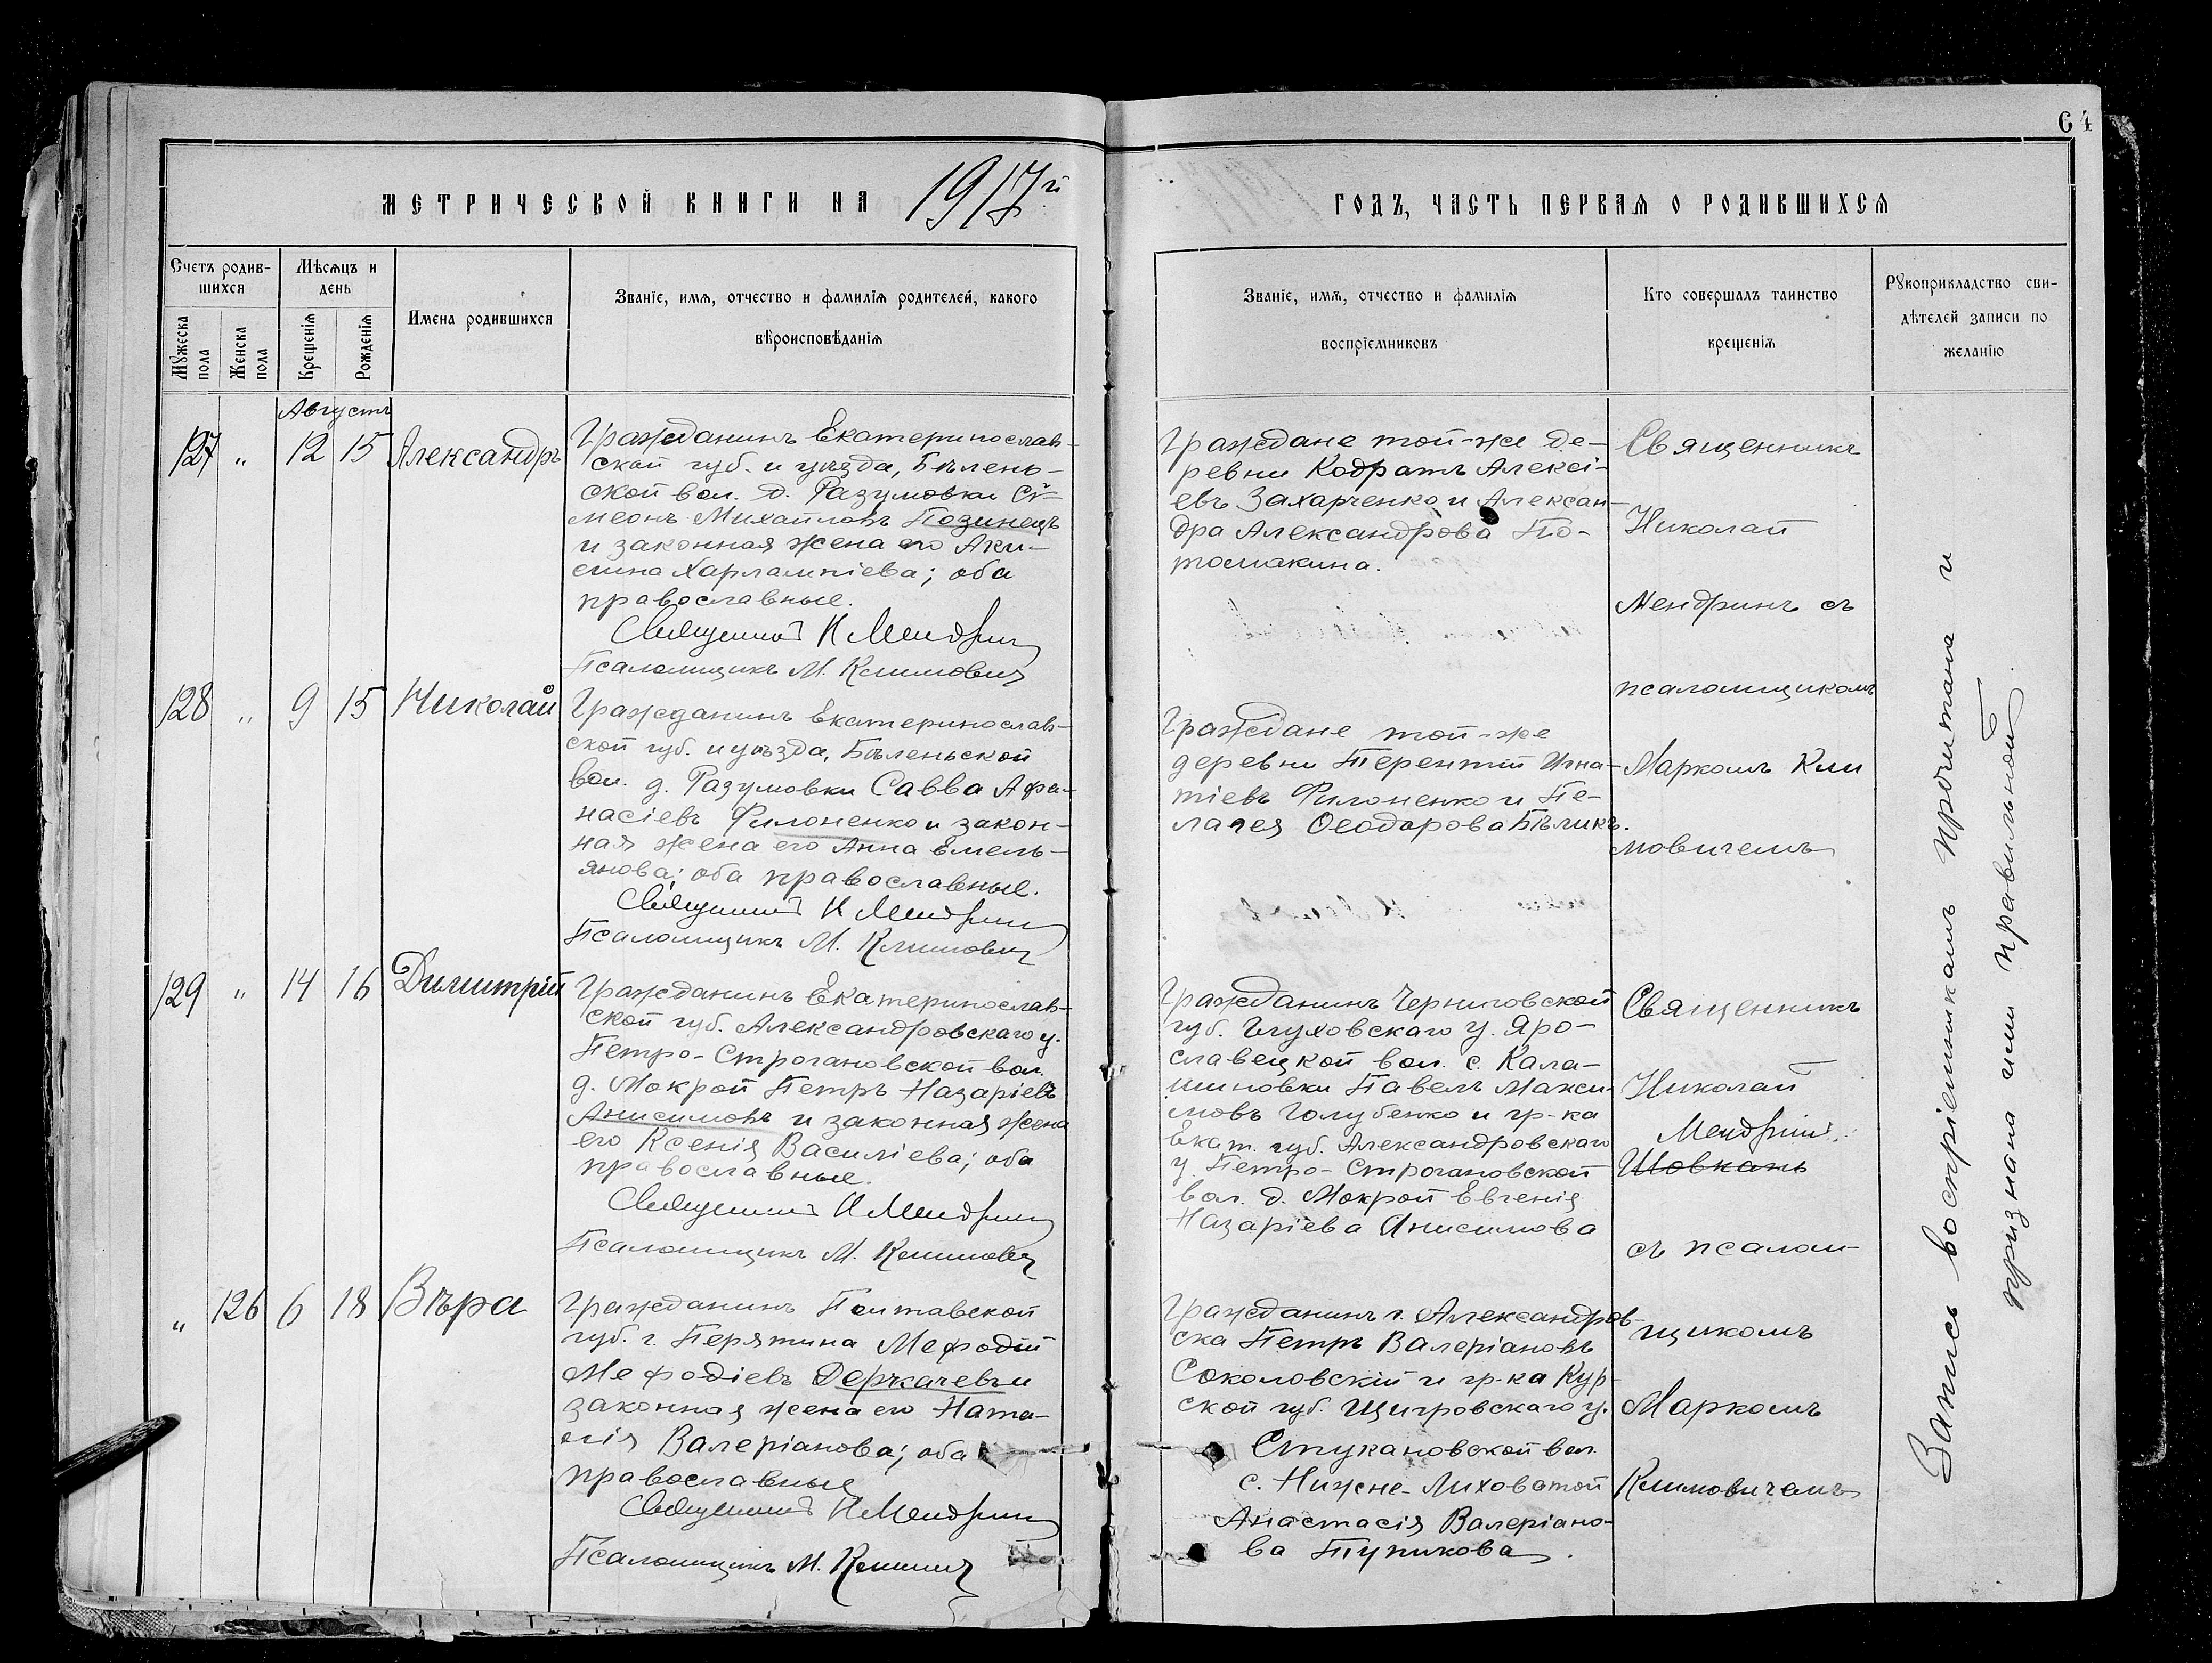 64
МЕТРИЧЕСКОЙ КНИГИ НА 1917й
ГОДЪ, ЧАСТЬ ПЕРВАЯ О РОДИВШИХСЯ
Счетъ родив-
шихся
Мужеска пола
Женска пола
Мѣсяцъ и
день
Крещенія
Рожденія
Имена родившихся
Званіе, имя, отчество и фамилія родителей, какого
вѣроисповѣданія
Званіе, имя, отчество и фамилія
воспріемниковъ
Кто совершалъ таинство
крещенія
Рукоприкладство сви-
дѣтелей записи по
желанію
Августъ
127 " 12 15 Александръ
Гражданинъ Екатеринослав-
ской губ. и уѣзда, Бѣлень-
ской вол. д. Разумовки Си-
меонъ Михайловъ Позинецъ
и законная жена его Аки-
лина Харлампіева; оба
православные.
Священникъ Н Мендрин
Псаломщикъ М. Климович
Граждане той-же де-
ревни Кодратъ Алексі-
евъ Захарченко и Алексан-
дра Александрова По-
томакина.
Священникъ
Николай
Мендринъ съ
псаломщикомъ
Маркомъ Кли
мовичемъ
128 " 9 15 Николай
Гражданинъ Екатеринослав-
ской губ. и уѣзда, Бѣленьской
вол. д. Разумовки Савва Афа-
насіевъ Филоненко и закон-
ная жена его Анна Емель-
янова; оба православные.
Священникъ Н Мендрин
Псаломщикъ М. Климович
Граждане той-же
деревни Терентій Игна-
тіевъ Филоненко и Пе-
лагея Ѳеодорова Бѣликъ.
129 " 14 16 Димитрій
Гражданинъ Екатеринослав-
ской губ. Александровскаго у.
Петро-Строгановской вол.
д. Мокрой Петръ Назаріевъ
Анисимовъ и законная жена
его Ксенія Василіева; оба
православные.
Священникъ Н Мендрин
Псаломщикъ М. Климович
Гражданинъ Черниговской
губ. Глуховскаго у. Яро-
славецкой вол. с. Кала-
шиновки Павелъ Макси-
мовъ Голубенко и гр-ка
Екат. губ. Александровскаго
у. Петро-Строгановской
вол. д. Мокрой Евгенія
Назаріева Анисимова
Священникъ
Николай
Мендрин
Шовкань
съ псалом-
щикомъ
Маркомъ
Климовичемъ
" 126 6 18 Вѣра
Гражданинъ Полтавской
губ. г. Перятина Мефодій
Мефодіевъ Деркачевъ и
законная жена его Ната-
лія Валеріанова; оба
православные
Священникъ Н Мендрин
Псаломщикъ М. Климич
Гражданинъ г. Александров-
ска Петръ Валеріановъ
Соколовскій и гр-ка Кур-
ской губ. Щигровскаго у.
Стукановской вол.
с. Нижне-Лиховатой
Анастасія Валеріано-
ва Тупикова.
Запись воспріемникамъ прочитана и
признана ими правильной.